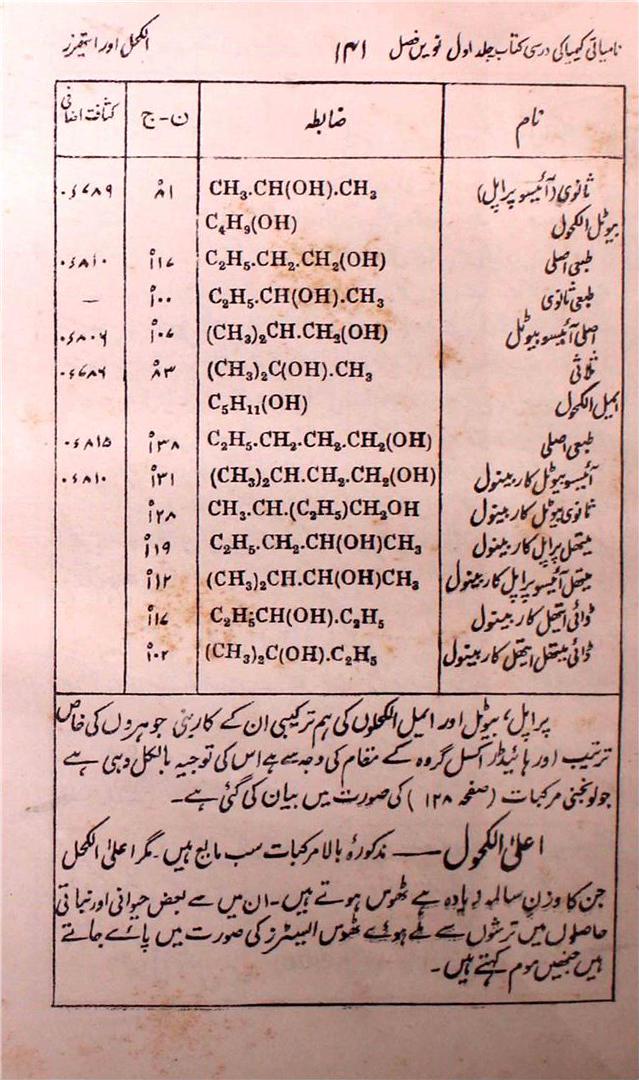 نامیاتی کیمیا کی درسی کتاب جلد اول نویں فصل ۱۴۱ الکحل اور استھرز
نام ضابطہ ن - ج کثافت اضافی
ثانوی (آئیسو پراپل) CH₃.CH(OH).CH₃ ۸۱° ۰٫۷۸۹
بیوٹل الکحول C₄H₉(OH)
طبعی اصلی C₂H₅.CH₂.CH₂(OH) ۱۱۷° ۰٫۸۱۰
طبعی ثانوی C₂H₅.CH(OH).CH₃ ۱۰۰° —
اصلی آئیسو بیوٹل (CH₃)₂CH.CH₂(OH) ۱۰۷° ۰٫۸۰۶
ثلاثی (CH₃)₂C(OH).CH₃ ۸۳° ۰٫۷۸۶
ایمل الکحول C₅H₁₁(OH)
طبعی اصلی C₂H₅.CH₂.CH₂.CH₂(OH) ۱۳۸° ۰٫۸۱۵
آئیسو بیوٹل کاربینول (CH₃)₂CH.CH₂.CH₂(OH) ۱۳۱° ۰٫۸۱۰
ثانوی بیوٹل کاربینول CH₃.CH.(C₂H₅)CH₂OH ۱۲۸°
میتھل پراپل کاربینول C₂H₅.CH₂.CH(OH)CH₃ ۱۱۹°
میتھل آئیسو پراپل کاربینول (CH₃)₂CH.CH(OH)CH₃ ۱۱۲°
ڈائی ایتھل کاربینول C₂H₅CH(OH).C₂H₅ ۱۱۷°
ڈائی میتھل ایتھل کاربینول (CH₃)₂C(OH).C₂H₅ ۱۰۲°
پراپل، بیوٹل اور ایمل الکحلوں کی ہم ترکیبی ان کے کاربنی جوہروں کی خاص
ترتیب اور ہائیڈر اکسل گروہ کے مقام کی وجہ سے ہے اس کی توجیہ بالکل وہی ہے
جو لونجنی مرکبات (صفحہ ۱۲۸) کی صورت میں بیان کی گئی ہے۔
اعلیٰ الکحول — مذکورہ بالا مرکبات سب مایع ہیں۔ مگر اعلیٰ الکحل
جن کا وزن سالمہ زیادہ ہے ٹھوس ہوتے ہیں۔ ان میں سے بعض حیوانی اور نباتی
حاصلوں میں ترشوں سے ملے ہوئے ٹھوس ایسٹرز کی صورت میں پائے جاتے
ہیں جنھیں موم کہتے ہیں۔